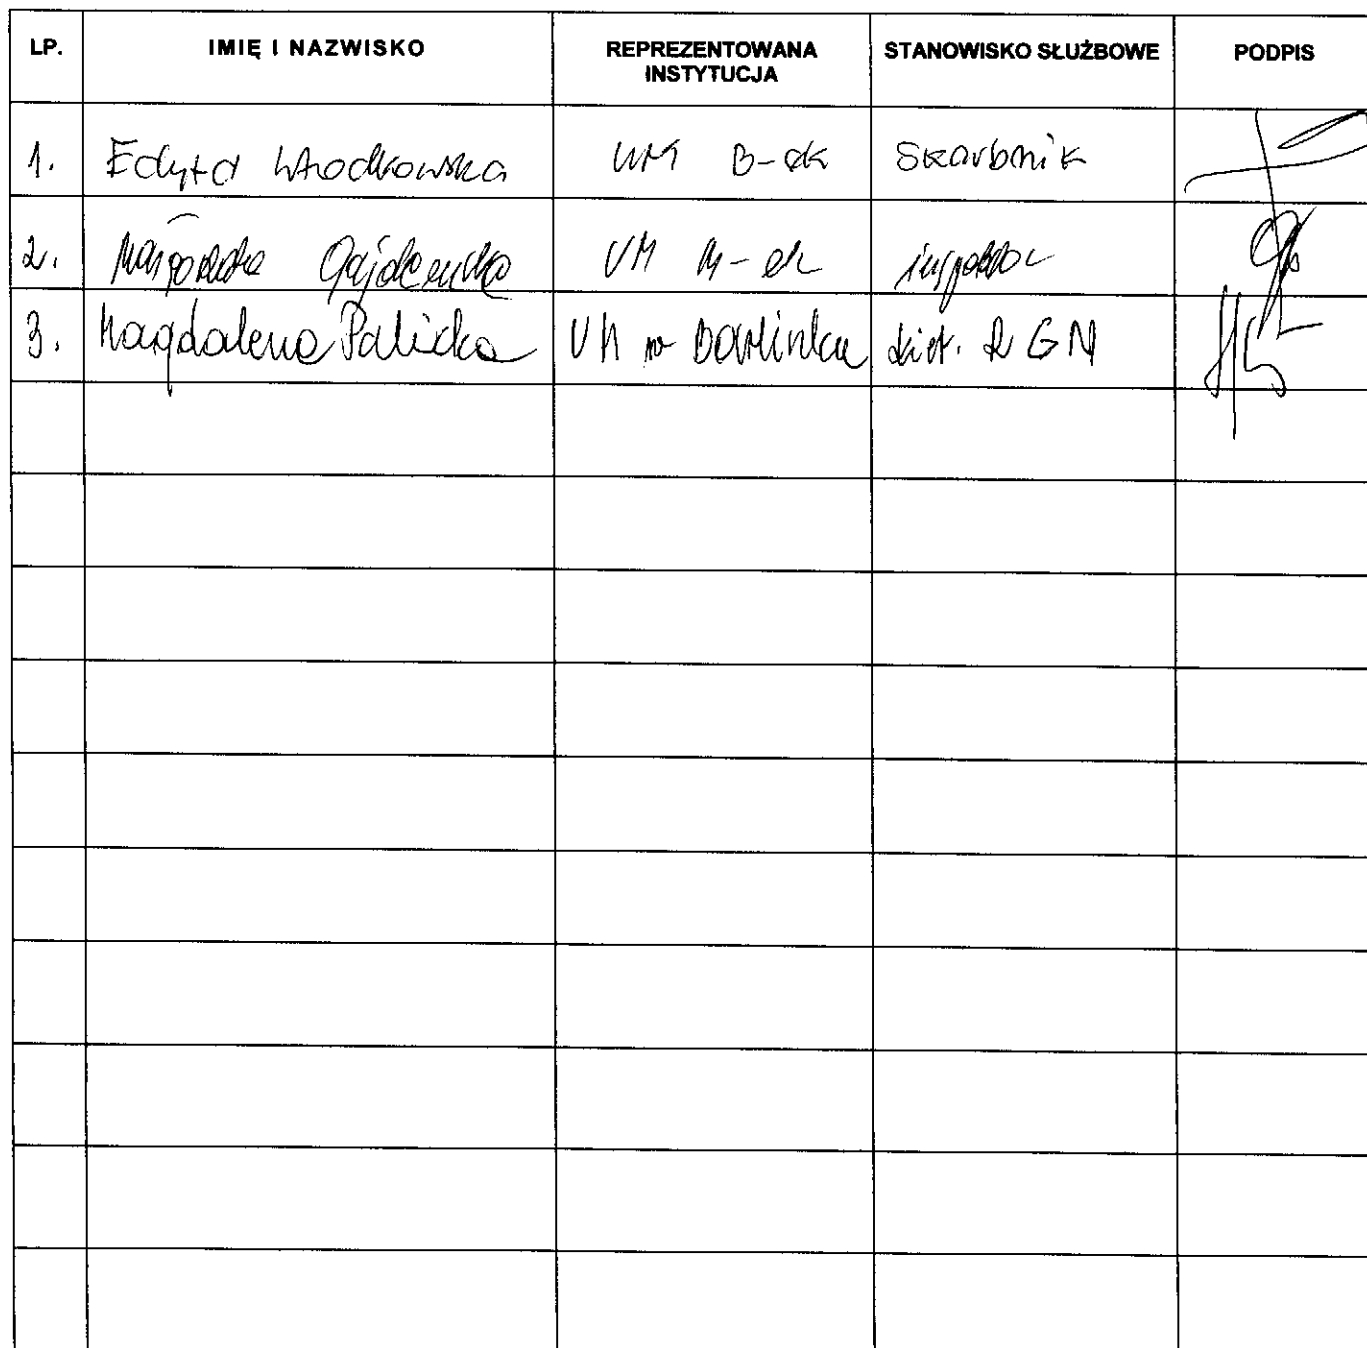 LP. IMIĘ I NAZWISKO REPREZENTOWANA INSTYTUCJA STANOWISKO SŁUŻBOWE PODPIS
1. Edyta Włodkowska UM B-ek Skarbnik
2. Małgorzata UM B-ek inspektor
3. Magdalena Palicka UM w Barlinku kier. RGN